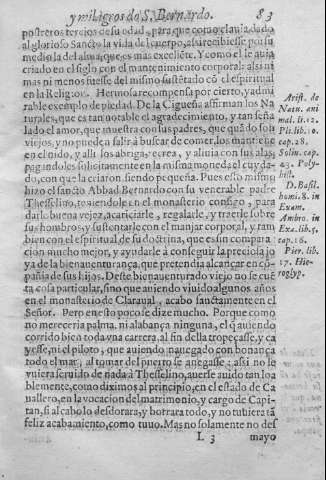 y milagros de S. Bernardo. 83
postreros tercios de su edad, para que como le auia dado
al glorioso Sancto la vida del cuerpo, assi recibiesse por su
medio la del alma, que es mas excelẽte. Y como el le auia
criado en el siglo con el mantenimiento corporal: assi ni
mas ni menos fuesse del mismo sustẽtado cõ el espiritual
en la Religiõ. Hermosa recompensa por cierto, y admi
rable exemplo de piedad. De la Cigueña affirman los Na
turales, que es tan notable el agradecimiento, y tan seña
lado el amor, que muestra con sus padres, que quãdo son
viejos, y no pueden salir à buscar de comer, los mantiene
en el nido, y alli los abriga, y cerea, y aliuia con sus alas,
pagandoles solicitamente en la misma moneda el cuyda-
do, con que la criaron siendo pequeña. Pues esto mismo
hizo el sancto Abbad Bernardo con su venerable padre
Thesselino, teniendole en el monasterio consigo, para
darle buena vejez, acariciarle, regalarle, y traerle sobre
sus hombros, y sustentarle con el manjar corporal, y tam
bien con el espiritual de su doctrina, que es sin compara
cion mucho mejor, y ayudarle à conseguir la preciola jo
ya de la bienauenturança, que pretendia alcançar en cõ
pañia de sus hijos. Deste bienauenturado viejo no se cuẽ
ta cosa particular, sino que auiendo viuido algunos años
en el monasterio de Claraual, acabo sanctamente en el
Señor. Pero en esto poco se dize mucho. Porque como
no mereceria palma, ni alabança ninguna, el q̃ auiendo
corrido bien toda vna carrera, al fin della tropeçasse, y ca
yesse, ni el piloto, que auiendo nauegado con bonança
todo el mar, al tomar del puerto se anegasse; assi no le
vuiera seruido de nada à Thesselino, auerse auido tan loa
blemente, como diximos al principio, en el estado de Ca
uallero, en la vocacion del matrimonio, y cargo de Capi-
tan, si al cabo lo desdorara, y borrara todo, y no tubiera tã
feliz acabamiento, como tuuo. Mas no solamente no des
L 3 mayo
Arist. de
Natu. ani
mal. li. 12.
Pli. lib. 10.
cap. 28.
Solin. cap.
43. Poly-
hist.
D. Basil.
homi. 8. in
Exam.
Ambro. in
Exa. lib. 5.
cap. 16.
Pier. lib.
17. Hie-
roglyp.